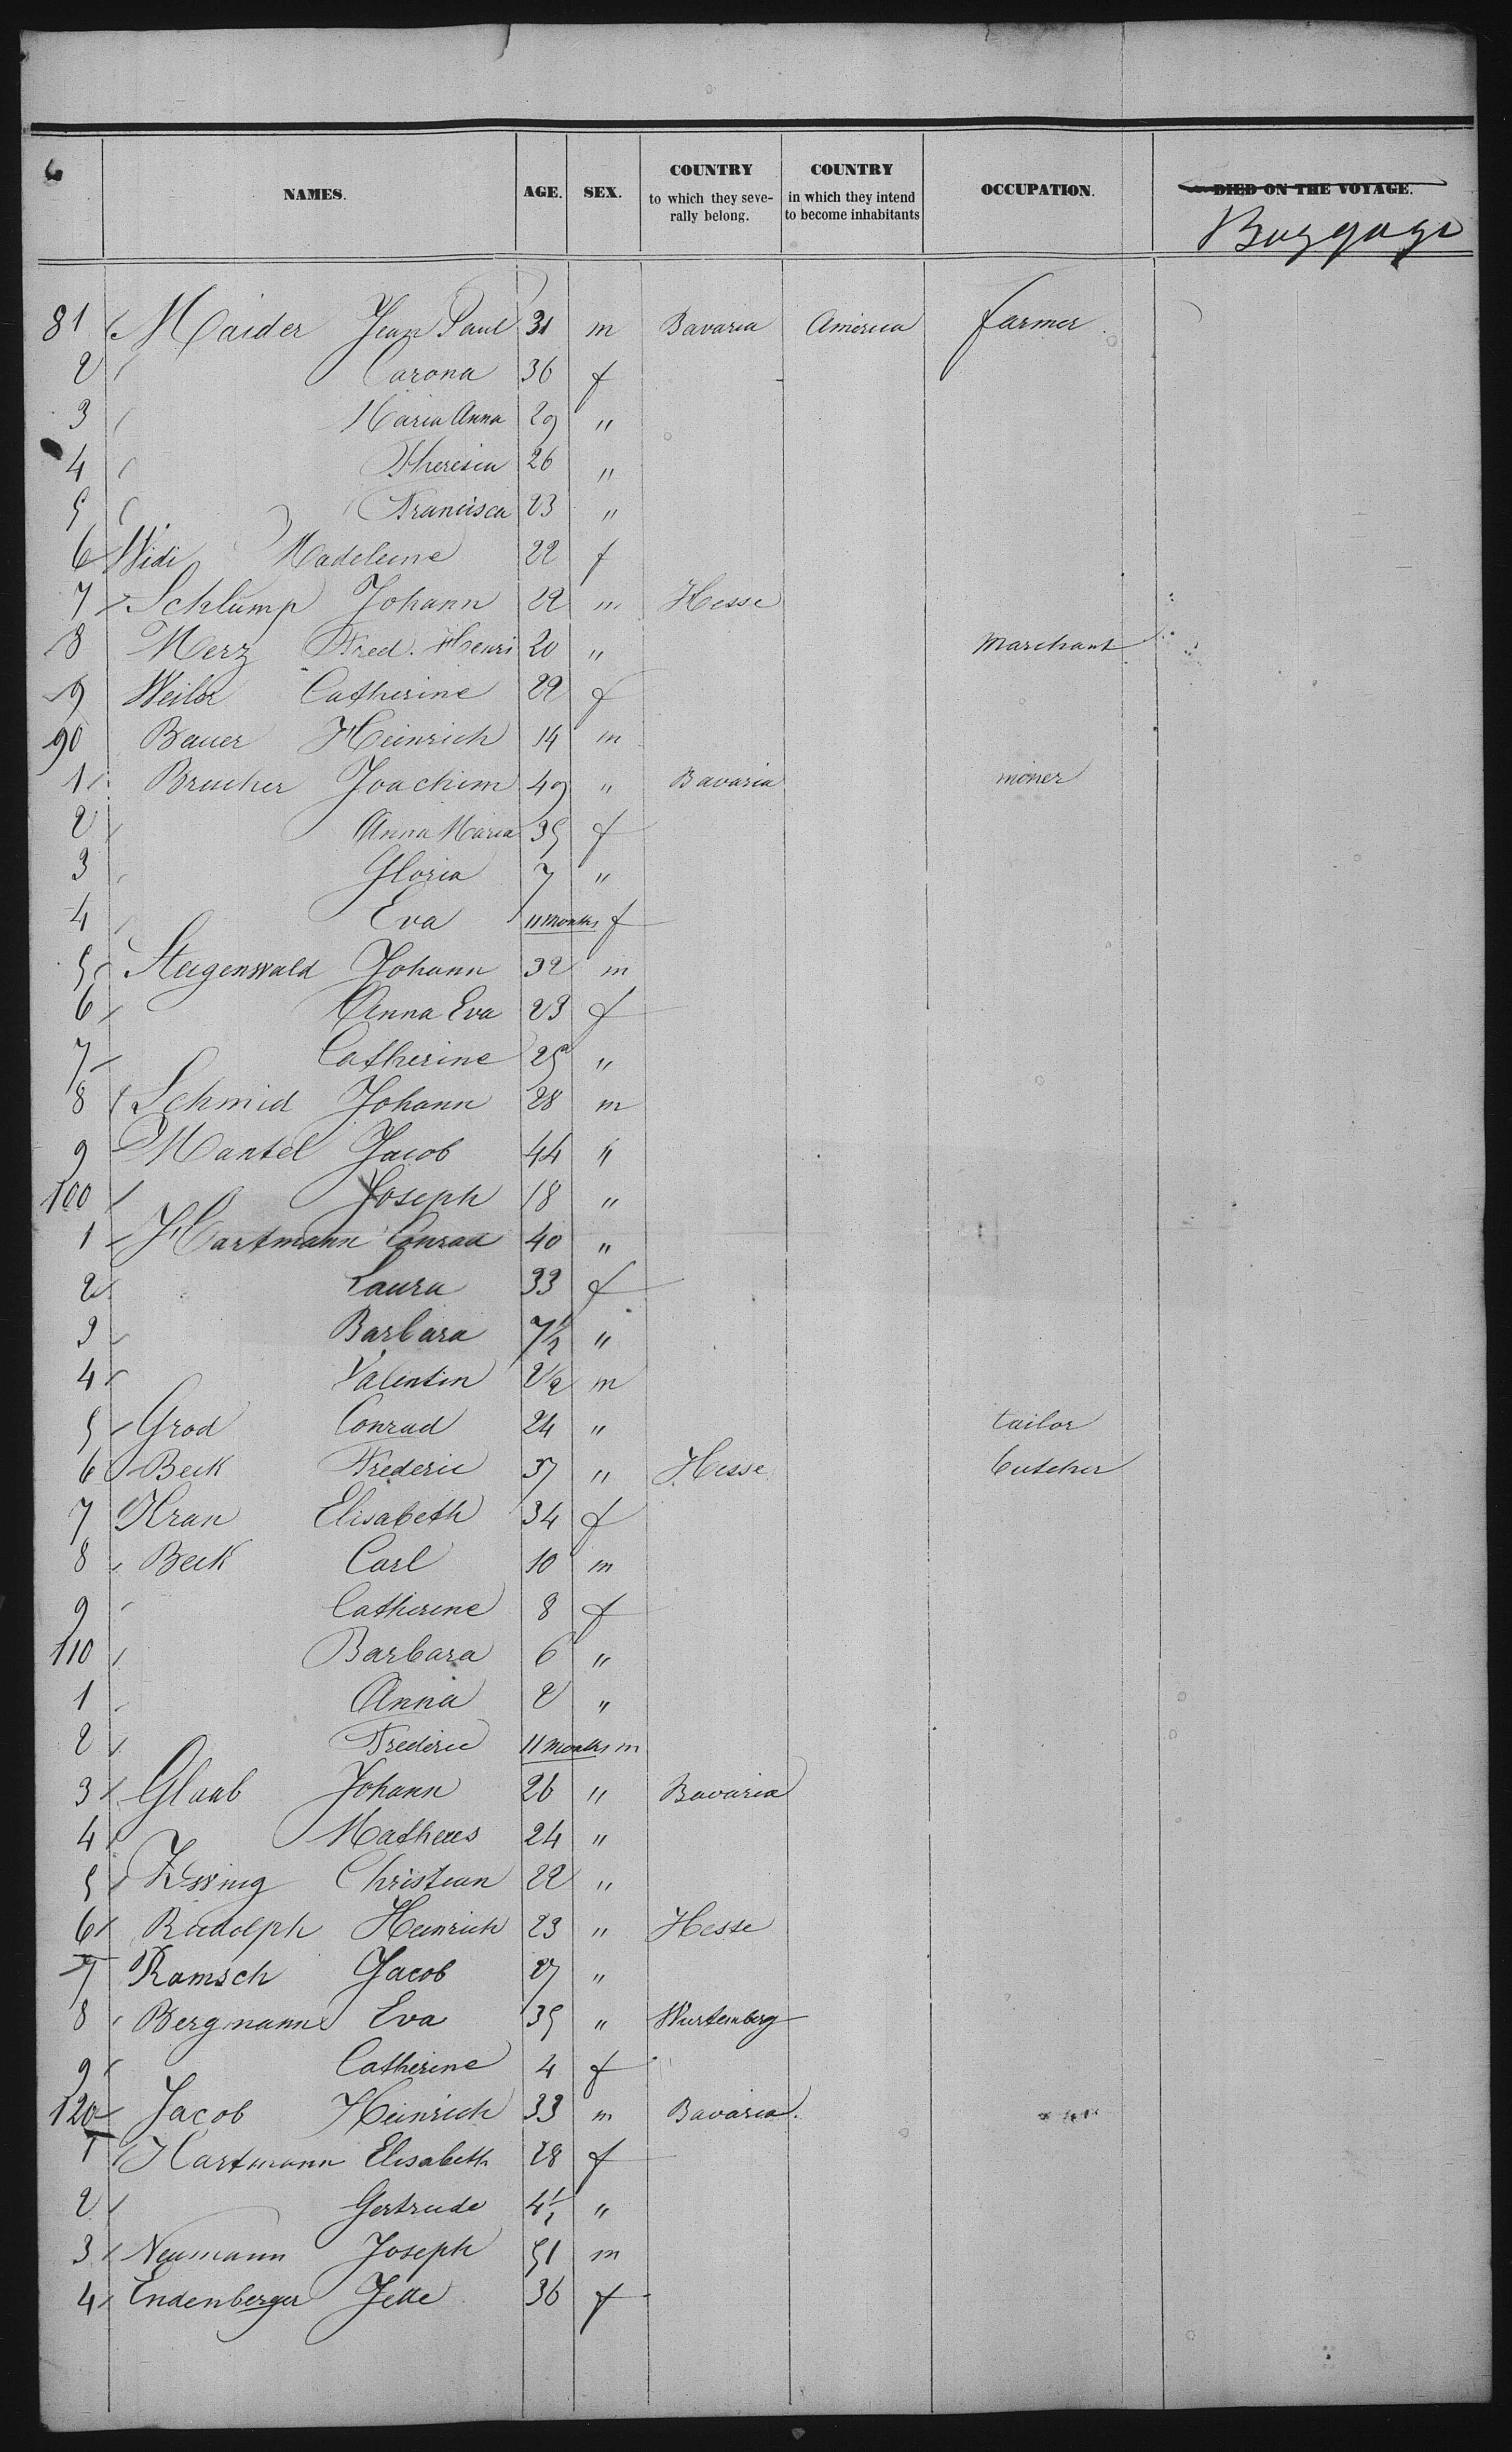 6
NAMES. AGE. SEX. COUNTRY to which they seve-rally belong. COUNTRY in which they intend to become inhabitants OCCUPATION. DIED ON THE VOYAGE.
Baggage
81 Maider Jean Paul 31 m Bavaria America farmer
2 Carona 36 f
3 Maria Anna 29 "
4 Theresia 26 "
5 Francisca 23 "
6 Widi Madeleine 22 f
7 Schlump Johann 22 m Hesse
8 Merz Fred. Henri 20 " Marchant
9 Weiler Catherine 22 f
90 Bauer Heinrich 14 m
1 Brucher Joachim 49 " Bavaria moner
2 Anna Maria 35 f
3 Gloria 7 "
4 Eva 11 months f
5 Steigenwald Johann 32 m
6 Anna Eva 23 f
7 Catherine 25 "
8 Schmid Johann 28 m
9 Mantel Jacob 44 "
100 Joseph 18 "
1 Hartmann Conrad 40 "
2 Laura 33 f
3 Barbara 7½ "
4 Valentin 2½ m
5 Grod Conrad 24 " tailor
6 Beck Frederic 37 " Hesse butcher
7 Kran Elisabeth 34 f
8 Beck Carl 10 m
9 Catherine 8 f
110 Barbara 6 "
1 Anna 2 "
2 Frederic 11 months m
3 Glaab Johann 26 " Bavaria
4 Matheus 24 "
5 Christian 22 "
6 Rudolph Heinrich 23 " Hesse
7 Ramsch Jacob 27 "
8 Bergmann Eva 35 " Wurtemberg
9 Catherine 4 f
120 Jacob Heinrich 33 m Bavaria.
1 Hartmann Elisabeth 28 f
2 Gertrude 4½ "
3 Neumann Joseph 51 m
4 Endenberger Jette 36 f